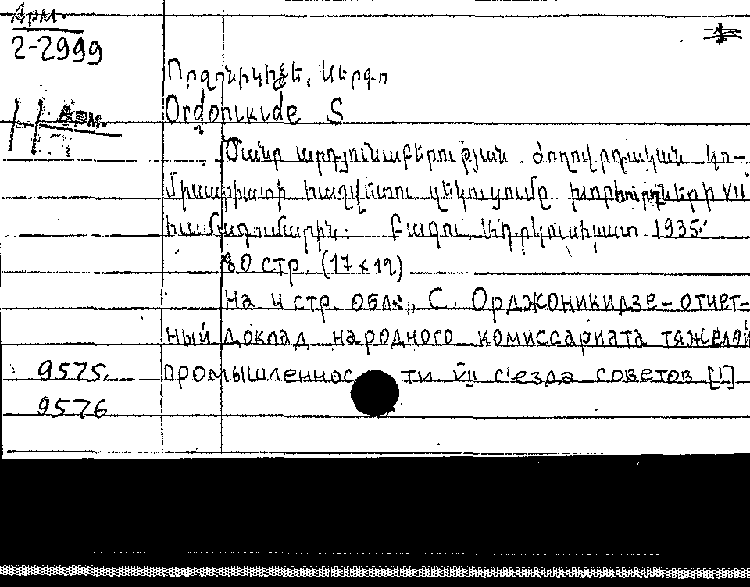 Арм.
2-2999
Արм.
Օրջոնիկիձե, Սերգո
Ordonikide S
Ծանր արդյունաբերության ժողովրդական կո-
միսարիատի հաշվետու զեկուցումը խորհուրդների VII
համագումարին: Բաքու, Ադրկուսհրատ 1935
80 стр. (17×12)
На 4 стр. обл., С. Орджоникидзе-отчет-
ный доклад народного комиссариата тяжелой
промышленнос ти VII с'езда советов [!]
9575.
9576